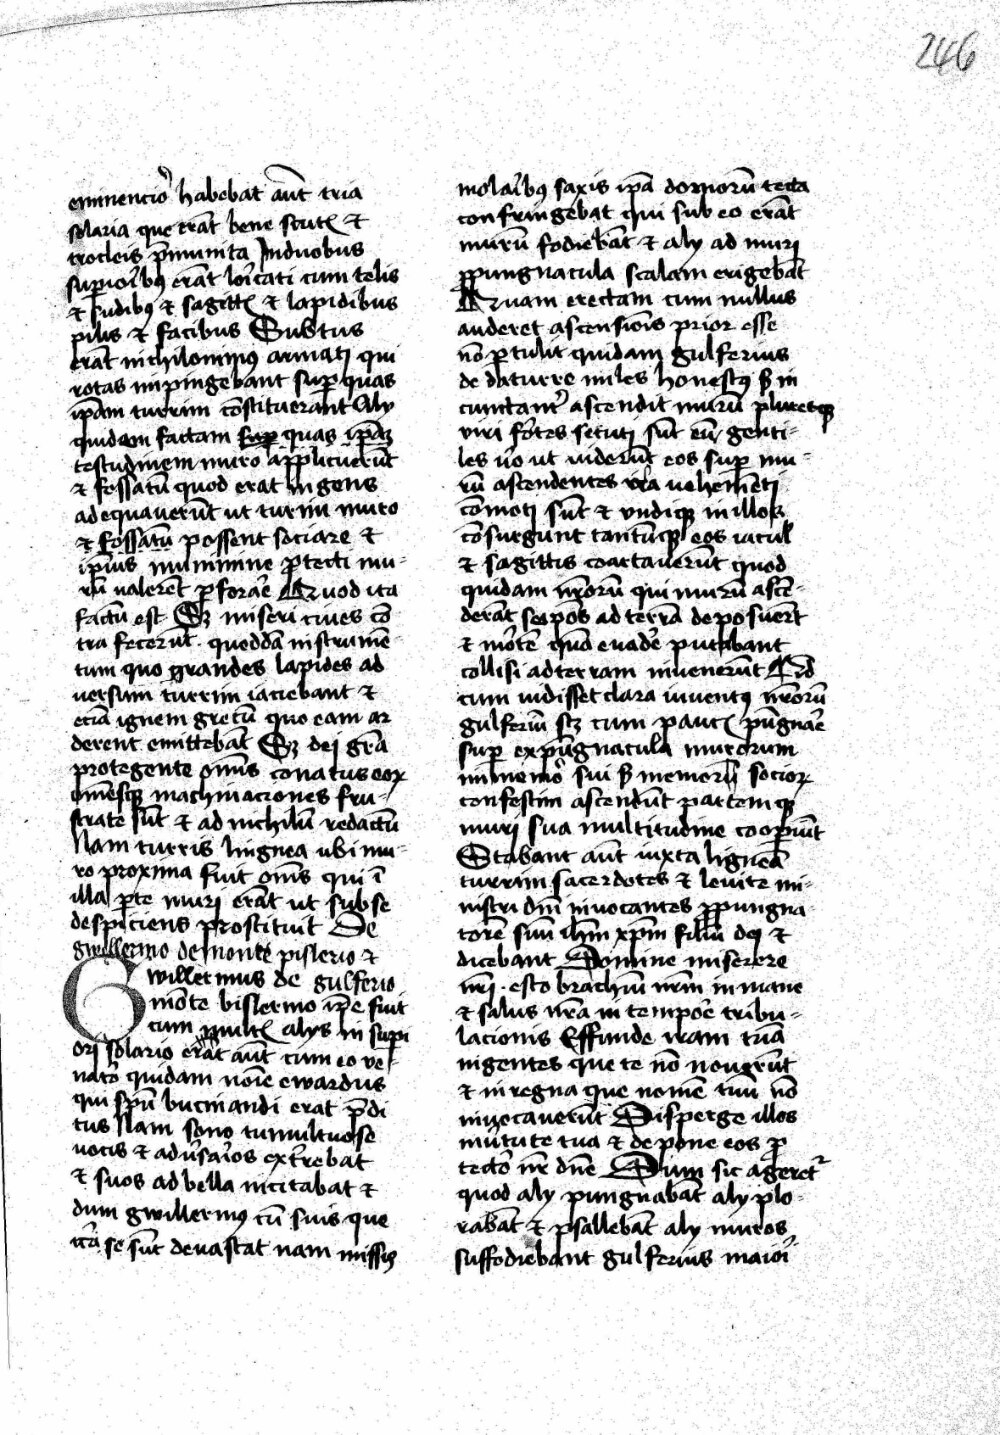 246
eminencior habebat aūt tria
solaria que erāt bene scut &
trocleis p̄munita Induobus
supioribꝰ erāt loricati cum telis
& sudibꝰ & sagitt & lapidibus
pilis & facibus Subtus
erāt nichilominꝰ armati qui
rotas impingebant sup quas
ip̄am turrim cōstituerant Aly
quidem factam sup quas ip̄aꝫ
testudinem muro applicuerūt
& fossatū quod erat ingens
adequaverūt ut turrim muro
& fossatū possent sociare &
ip̄ius munimine ꝓtecti mu-
rū valerēt ꝑforare Quod ita
factū est Sꝫ miseri cives cō
tra fecerūt queddā instrumē-
tum quo grandes lapides ad
versum turrim iaciebant &
eciā ignem grecū quo eam ar
derent emittebāt Sꝫ dei gr̄a
protegente om̄is conatus eoꝝ
om̄esqꝫ machinaciones fru-
strate sūt & ad nichilū redactū
Nam turris lingnea ubi mu-
ro proxima fuit om̄is qui ī
illa ꝑte muri erāt ut sub se
despiciens prostituit De
gwillermo de monte pislerio &
Gwillermus de gulferio
mōte bislermo ip̄e fuit
cum mult alys in supi
ori solario erāt aūt cum eo ve-
nator quidam noīe ewardus
qui sp̄ū bucinandi erat p̄di
tus Nam sono tumultuose
vocis & adv̄sarios ext̄rebat
& suos ad bella incitabat &
dum gwillermꝰ cū suis que
itā se sūt devastat nam missis
molaribꝰ saxis ip̄a domorū tecta
confringebat qui sub eo erāt
murū fodiebāt & aly ad muri
ꝓpungnacula scalam erigebāt
Quam erectam cum nullus
auderet ascensiōis prior esse
nō ꝑtulit quidam gulferius
de daturre miles honestꝰ sꝫ in
cunctant ascendit murū pluresqꝫ
viri fortes secuti sūt eū genti-
les v̄o ut viderūt eos sup mu-
rū ascendentes ira vehemēti
cōmoti sūt & undiqꝫ in illos
cōsurgunt tantūqꝫ eos iacul
& sagittis coartaverūt quod
quidam nr̄orū qui murū ascē-
derāt se ipos ad terrā deposuert
& mortē quā evadere putabant
collisi ad terram invenerūt Qd
cum vidisset clara iuventꝰ nr̄orū
gulferiū scꝫ cum pauc pūgnare
sup expūgnacula murorum
inmemor sui sꝫ memorū socioꝝ
confestim ascendūt partemqꝫ
muri sua multitudine cooperiūt
Stabant aūt iuxta ligneā
turrim sacerdotes & levite mi-
nistri dn̄i invocantes ꝓpungna-
torē suū ih̄m xp̄m filiū dei &
dicebant Domine miserere
nr̄i esto brachiū nr̄m in mane
& salus nr̄a in tempore tribu-
lacionis Effunde iram tuā
ingentes que te nō noverūt
& in regna que nomē tuū nō
invocaverūt Disperge illos
in v̄tute tua & depone eos ꝓ
tector nr̄ dn̄e Dum sic ageret
quod aly pungnabāt aly plo-
rabāt & psallebāt aly muros
suffodiebant gulferius maiori